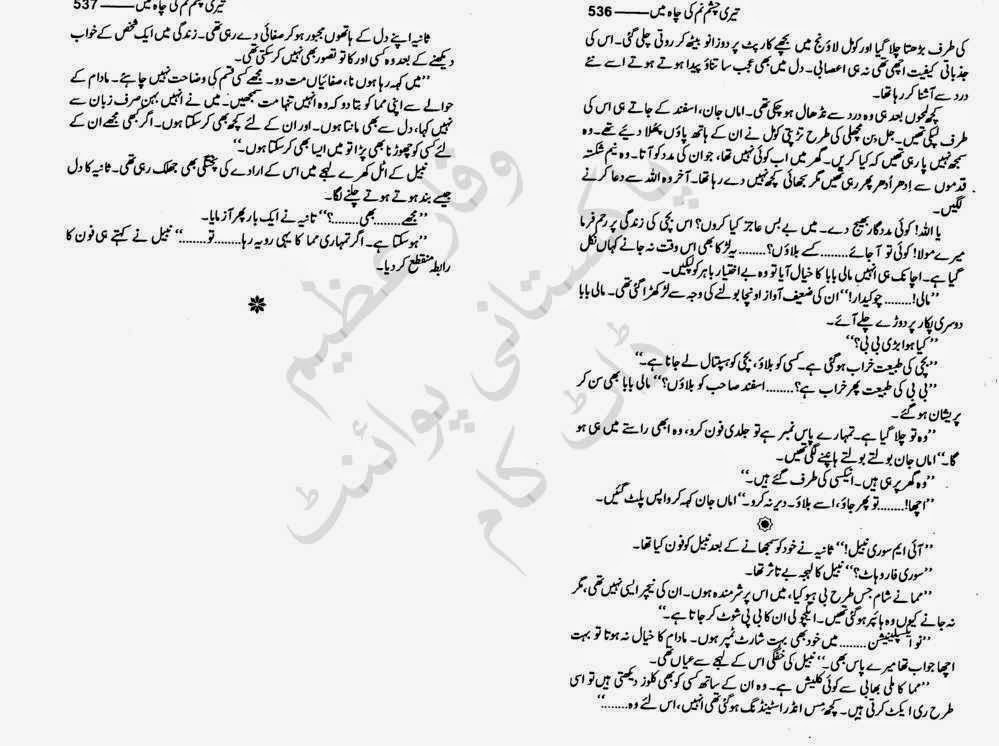 تیری چشم نم کی چاہ میں —— 536
کی طرف بڑھتا چلا گیا اور کومل لاؤنج میں بچھے کارپٹ پر دوزانو بیٹھ کر روتی چلی گئی۔ اس کی
جذباتی کیفیت اچھی تھی نہ ہی اعصابی۔ دل میں بھی عجب سا تناؤ پیدا ہوتے ہوتے اسے نئے
درد سے آشنا کر رہا تھا۔
کچھ لمحوں بعد ہی وہ درد سے نڈھال ہو چکی تھی۔ اماں جان، اسفند کے جاتے ہی اس کی
طرف لپکی تھیں۔ جل بن مچھلی کی طرح تڑپتی کومل نے ان کے ہاتھ پاؤں پھلا دیئے تھے۔ وہ
سمجھ نہیں پا رہی تھیں کہ کیا کریں۔ گھر میں اب کوئی نہیں تھا، جو ان کی مدد کو آتا۔ وہ نیم شکستہ
قدموں سے اِدھر اُدھر پھر رہی تھیں مگر سجھائی کچھ نہیں دے رہا تھا۔ آخر وہ اللہ سے دعا کرنے
لگیں۔
یا اللہ! کوئی مددگار بھیج دے۔ میں بے بس عاجز کیا کروں؟ اس بچی کی زندگی پر رحم فرما
میرے مولا! کوئی تو آ جائے........ کسے بلاؤں؟........ یہ لڑکا بھی اس وقت نہ جانے کہاں نکل
گیا ہے۔ اچانک ہی انہیں مالی بابا کا خیال آیا تو وہ بے اختیار باہر کو لپکیں۔
’’مالی!........ چوکیدار!‘‘ ان کی ضعیف آواز اونچا بولنے کی وجہ سے لڑکھڑا گئی تھی۔ مالی بابا
دوسری پکار پر دوڑے چلے آئے۔
’’کیا ہوا بڑی بی بی؟‘‘
’’بچی کی طبیعت خراب ہو گئی ہے۔ کسی کو بلاؤ، بچی کو ہسپتال لے جانا ہے۔‘‘
’’بی بی کی طبیعت پھر خراب ہے؟........ اسفند صاحب کو بلاؤں؟‘‘ مالی بابا بھی سن کر
پریشان ہو گئے۔
’’وہ تو چلا گیا ہے۔ تمہارے پاس نمبر ہے تو جلدی فون کرو، وہ ابھی راستے میں ہی ہو
گا۔‘‘ اماں جان بولتے بولتے ہانپنے لگی تھیں۔
’’وہ گھر پر ہی ہیں۔ انیکسی کی طرف گئے ہیں۔‘‘
’’اچھا!........ تو پھر جاؤ، اسے بلاؤ۔ دیر نہ کرو۔‘‘ اماں جان کہہ کر واپس پلٹ گئیں۔
’’آئی ایم سوری نبیل!‘‘ ثانیہ نے خود کو سمجھانے کے بعد نبیل کو فون کیا تھا۔
’’سوری فار وہاٹ؟‘‘ نبیل کا لہجہ بے تاثر تھا۔
’’مما نے شام جس طرح بی ہیو کیا، میں اس پر شرمندہ ہوں۔ ان کی نیچر ایسی نہیں تھی، مگر
نہ جانے کیوں وہ ہائپر ہو گئی تھیں۔ ایکچولی ان کا بی پی شوٹ کر جاتا ہے۔‘‘
’’نو ایکسپلینیشن........ میں خود بھی بہت شارٹ ٹمپر ہوں۔ مادام کا خیال نہ ہوتا تو بہت
اچھا جواب تھا میرے پاس بھی۔‘‘ نبیل کی خفگی اس کے لہجے سے عیاں تھی۔
’’مما کا ملی بھابی سے کوئی کلیش ہے۔ وہ ان کے ساتھ کسی کو بھی کلوز دیکھتی ہیں تو اسی
طرح ری ایکٹ کرتی ہیں۔ کچھ مس انڈر اسٹینڈنگ ہو گئی تھی انہیں، اس لئے وہ........‘‘
تیری چشم نم کی چاہ میں —— 537
ثانیہ اپنے دل کے ہاتھوں مجبور ہو کر صفائی دے رہی تھی۔ زندگی میں ایک شخص کے خواب
دیکھنے کے بعد وہ کسی اور کا تو تصور بھی نہیں کر سکتی تھی۔
’’میں کہہ رہا ہوں نا، صفائیاں مت دو۔ مجھے کسی قسم کی وضاحت نہیں چاہئے۔ مادام کے
حوالے سے اپنی مما کو بتا دو کہ وہ انہیں تنہا مت سمجھیں۔ میں نے انہیں بہن صرف زبان سے
نہیں کہا، دل سے بھی مانتا ہوں۔ اور ان کے لئے کچھ بھی کر سکتا ہوں۔ اگر کبھی مجھے ان کے
لئے کسی کو چھوڑنا بھی پڑا تو میں ایسا بھی کر سکتا ہوں۔‘‘
نبیل کے اٹل کھرے لہجے میں اس کے ارادے کی پختگی بھی جھلک رہی تھی۔ ثانیہ کا دل
جیسے بند ہوتے ہوتے چلنے لگا۔
’’مجھے........ بھی........؟‘‘ ثانیہ نے ایک بار پھر آزمایا۔
’’ہو سکتا ہے۔ اگر تمہاری مما کا یہی رویہ رہا........ تو........‘‘ نبیل نے کہتے ہی فون کا
رابطہ منقطع کر دیا۔
وقار عظیم
پاکستانی پوائنٹ
ڈاٹ کام